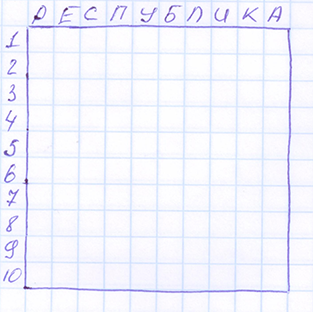 РЕСПУБЛИКА
1
2
3
4
5
6
7
8
9
10